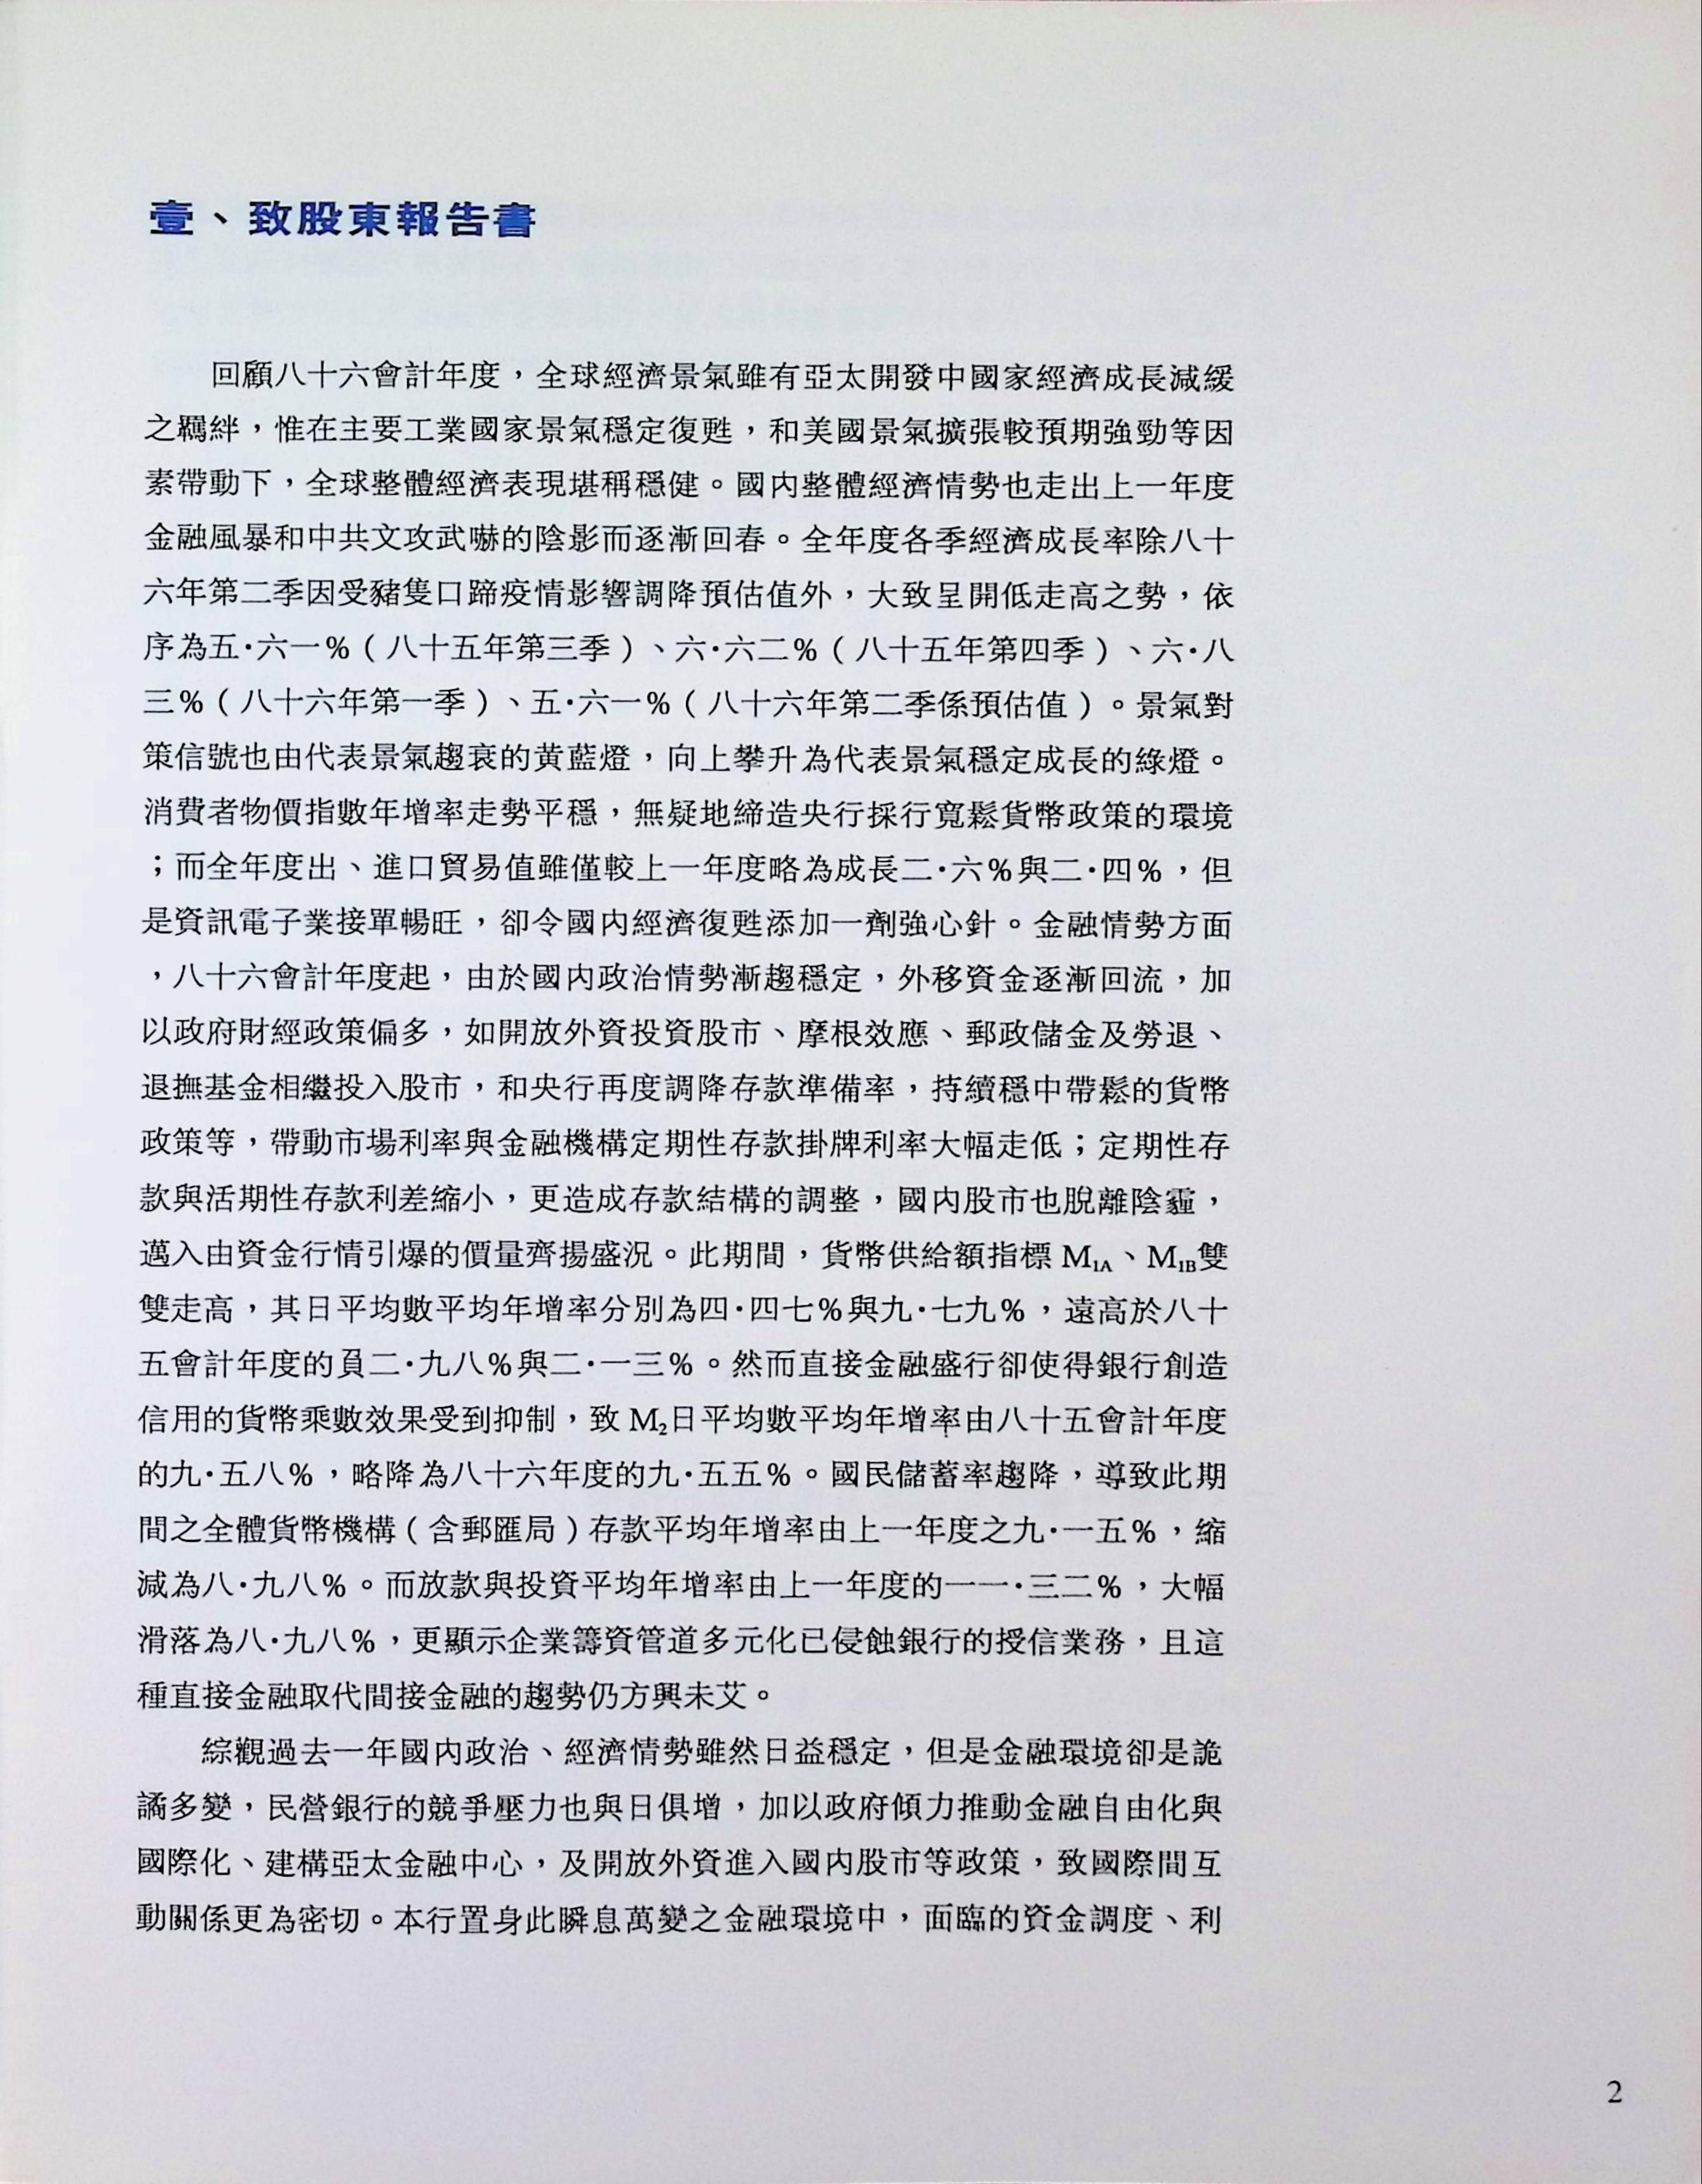 壹、致股東報告書
回顧八十六會計年度，全球經濟景氣雖有亞太開發中國家經濟成長減緩
之羈絆，惟在主要工業國家景氣穩定復甦，和美國景氣擴張較預期強勁等因
素帶動下，全球整體經濟表現堪稱穩健。國內整體經濟情勢也走出上一年度
金融風暴和中共文攻武嚇的陰影而逐漸回春。全年度各季經濟成長率除八十
六年第二季因受豬隻口蹄疫情影響調降預估值外，大致呈開低走高之勢，依
序為五·六一%（八十五年第三季）、六·六二%（八十五年第四季）、六·八
三%（八十六年第一季）、五·六一%（八十六年第二季係預估值）。景氣對
策信號也由代表景氣趨衰的黃藍燈，向上攀升為代表景氣穩定成長的綠燈。
消費者物價指數年增率走勢平穩，無疑地締造央行採行寬鬆貨幣政策的環境
；而全年度出、進口貿易值雖僅較上一年度略為成長二·六%與二·四%，但
是資訊電子業接單暢旺，卻令國內經濟復甦添加一劑強心針。金融情勢方面
，八十六會計年度起，由於國內政治情勢漸趨穩定，外移資金逐漸回流，加
以政府財經政策偏多，如開放外資投資股市、摩根效應、郵政儲金及勞退、
退撫基金相繼投入股市，和央行再度調降存款準備率，持續穩中帶鬆的貨幣
政策等，帶動市場利率與金融機構定期性存款掛牌利率大幅走低；定期性存
款與活期性存款利差縮小，更造成存款結構的調整，國內股市也脫離陰霾，
邁入由資金行情引爆的價量齊揚盛況。此期間，貨幣供給額指標 M1A、M1B雙
雙走高，其日平均數平均年增率分別為四·四七%與九·七九%，遠高於八十
五會計年度的負二·九八%與二·一三%。然而直接金融盛行卻使得銀行創造
信用的貨幣乘數效果受到抑制，致 M2日平均數平均年增率由八十五會計年度
的九·五八%，略降為八十六年度的九·五五%。國民儲蓄率趨降，導致此期
間之全體貨幣機構（含郵匯局）存款平均年增率由上一年度之九·一五%，縮
減為八·九八%。而放款與投資平均年增率由上一年度的一一·三二%，大幅
滑落為八·九八%，更顯示企業籌資管道多元化已侵蝕銀行的授信業務，且這
種直接金融取代間接金融的趨勢仍方興未艾。
綜觀過去一年國內政治、經濟情勢雖然日益穩定，但是金融環境卻是詭
譎多變，民營銀行的競爭壓力也與日俱增，加以政府傾力推動金融自由化與
國際化、建構亞太金融中心，及開放外資進入國內股市等政策，致國際間互
動關係更為密切。本行置身此瞬息萬變之金融環境中，面臨的資金調度、利
2